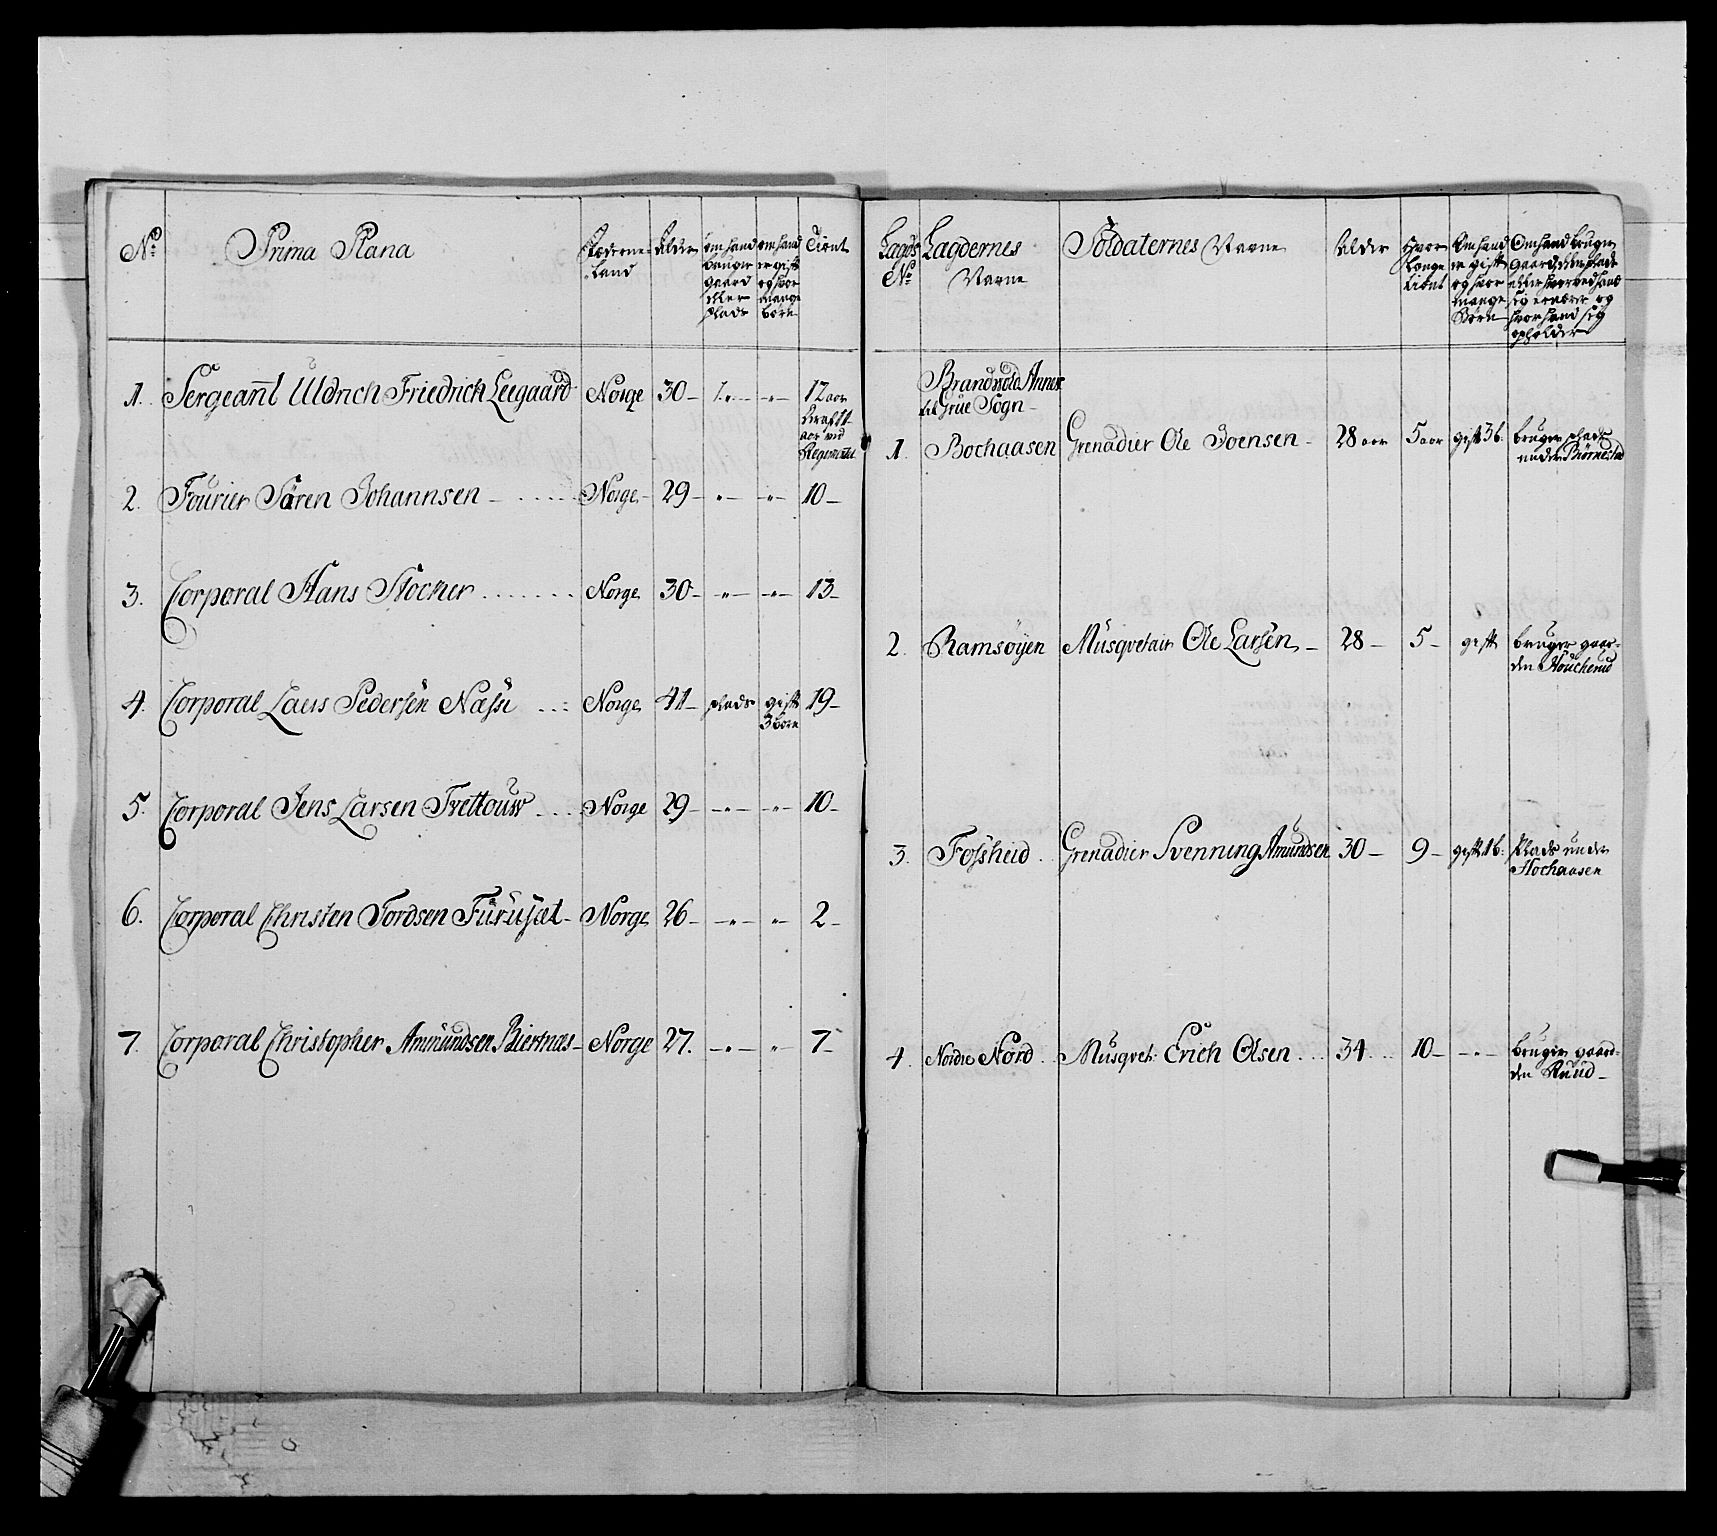 No Prima Plana Fæderne Land Alder om hand bruger gaard eller plads om hand er gift og hvor mange børn Tient
1. Sergeannt Uldrich Friedrich Leegaard Norge 30 – 1. – " – 12 aar
aar ved
Regimentet
2. Fourier Søren Johannsen – Norge – 29 – " – " – 10 –
3. Corporal Hans Stocher Norge 30 – " – " – 13 –
4. Corporal Laers Pedersen Næss Norge 41 – plads gift 19 –
3 børn
5. Corporal Jens Larsen Trettouw Norge 29 – " – " – 10 –
6. Corporal Christen Tordsen Furusæt – Norge 26 – " – " – 2 –
7. Corporal Christopher Ammundsen Biertnæs – Norge 27. – " – " – 7 –
Lægds No Lægdernes Navne Soldaternes Navne Alder Hvor Længe tient Om hand er gift og hvor mange Børn Om hand bruger Gaard eller plads eller hvorved hand sig ernærer og hvor hand sig opholder
Brandvold Annex
til Grue Sogn –
1. Bochaasen Grenadier Ole Joensen – 28 aar 5 aar gift 3 b: bruger plads
under Biørnestad
2. Ramsøyen Musqvetair Ole Larsen – 28 – 5 – gift bruger gaar-
den Houcherud
3. Fossheid Grenadier Svenning Amundsen 30 – 9 – gift 1 b: Plads under
Hochaasen
4. Nordre Nord Musqvet: Erich Olsen 34 10 – – " – bruger gaard-
den Ruud –